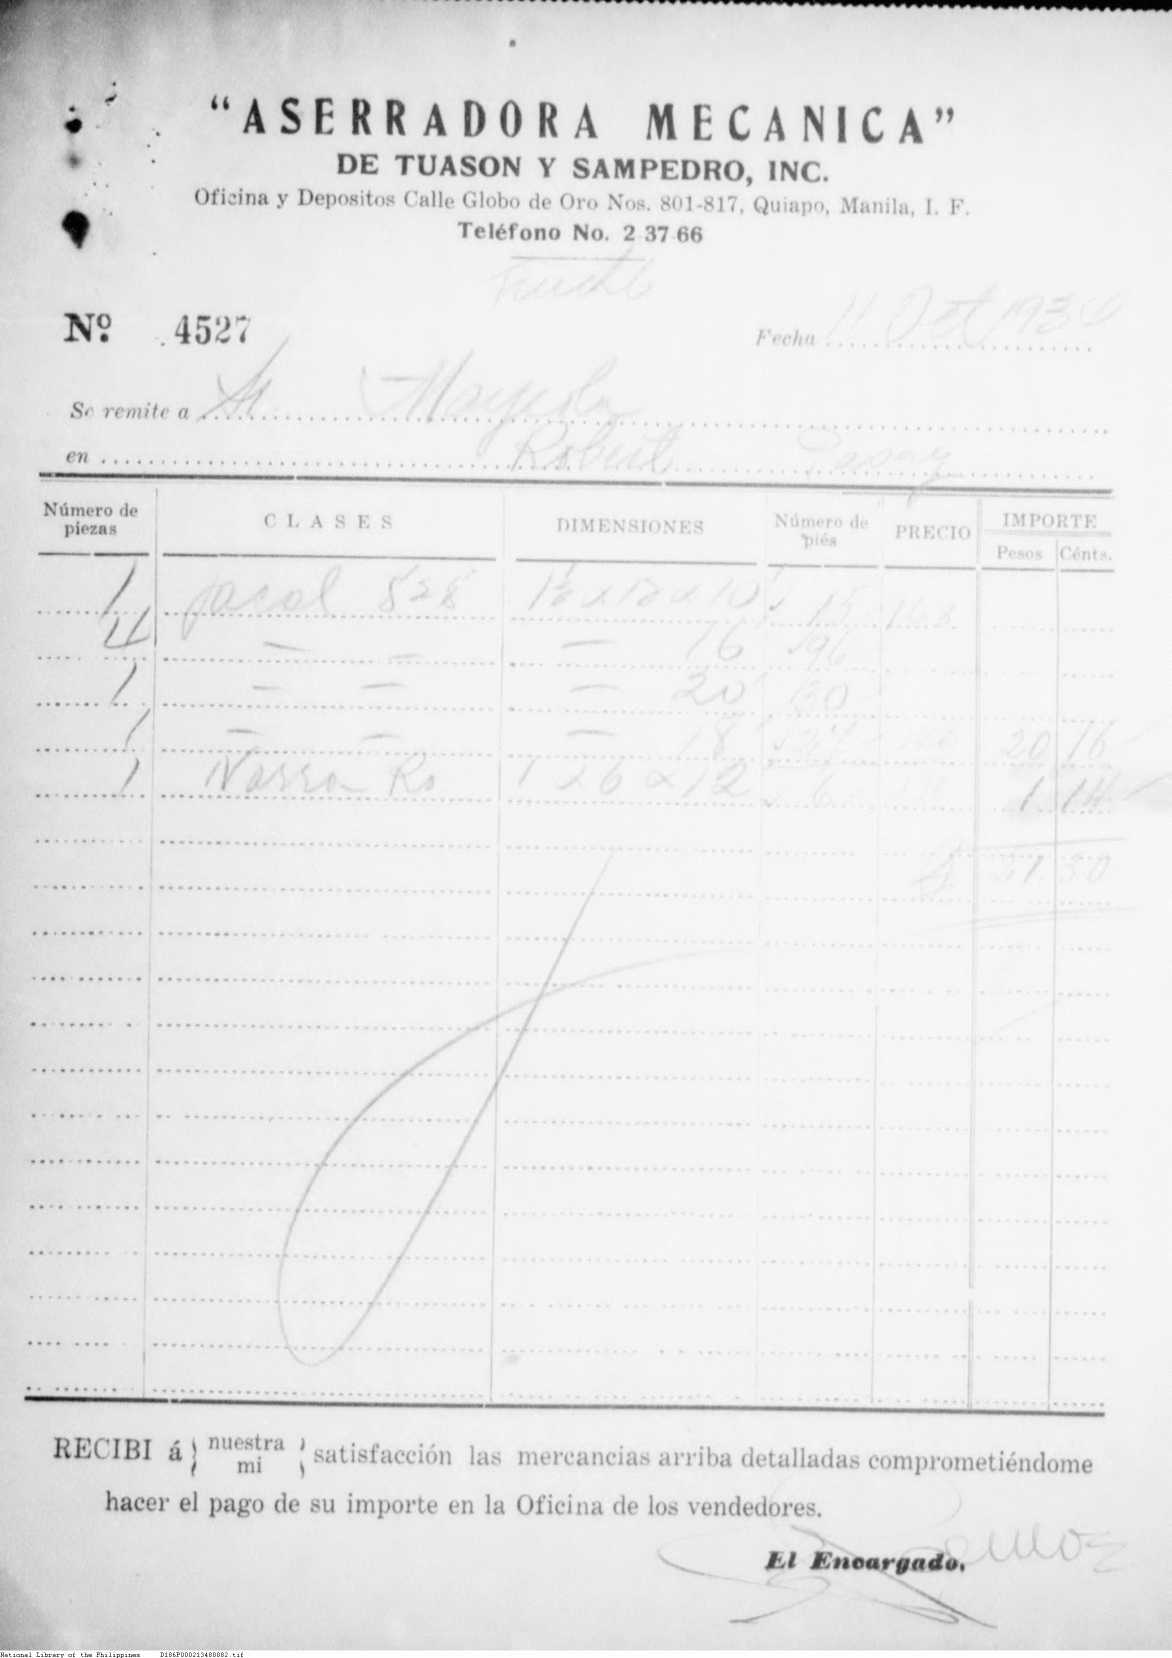 "ASERRADORA MECANICA"
DE TUASON Y SAMPEDRO, INC.
Oficina y Depositos Calle Globo de Oro Nos. 801-817, Quiapo, Manila, I. F.
Teléfono No. 2 37 66
Nº. 4527
Fecha 11 Oct 1934
Se remite a Sr
en Robert Pasay
Número de piezas CLASES DIMENSIONES Número de piés PRECIO IMPORTE
Pesos Cénts.
1 528 1½ x 12 x 10 15
4 — — — 16 96
1 — — — 20 30
1 — — — 18 27 20 16
1 Narra Ro 1 x 6 x 12 6 1 14
21 30
RECIBI á nuestra mi satisfacción las mercancias arriba detalladas comprometiéndome
hacer el pago de su importe en la Oficina de los vendedores.
El Encargado.
National Library of the Philippines D186P000213488882.tif